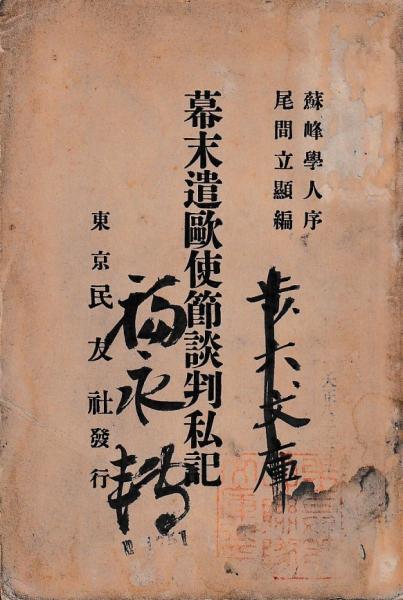 蘇峰學人序
尾間立顯編
幕末遣歐使節談判私記
東京民友社發行
文庫
福永